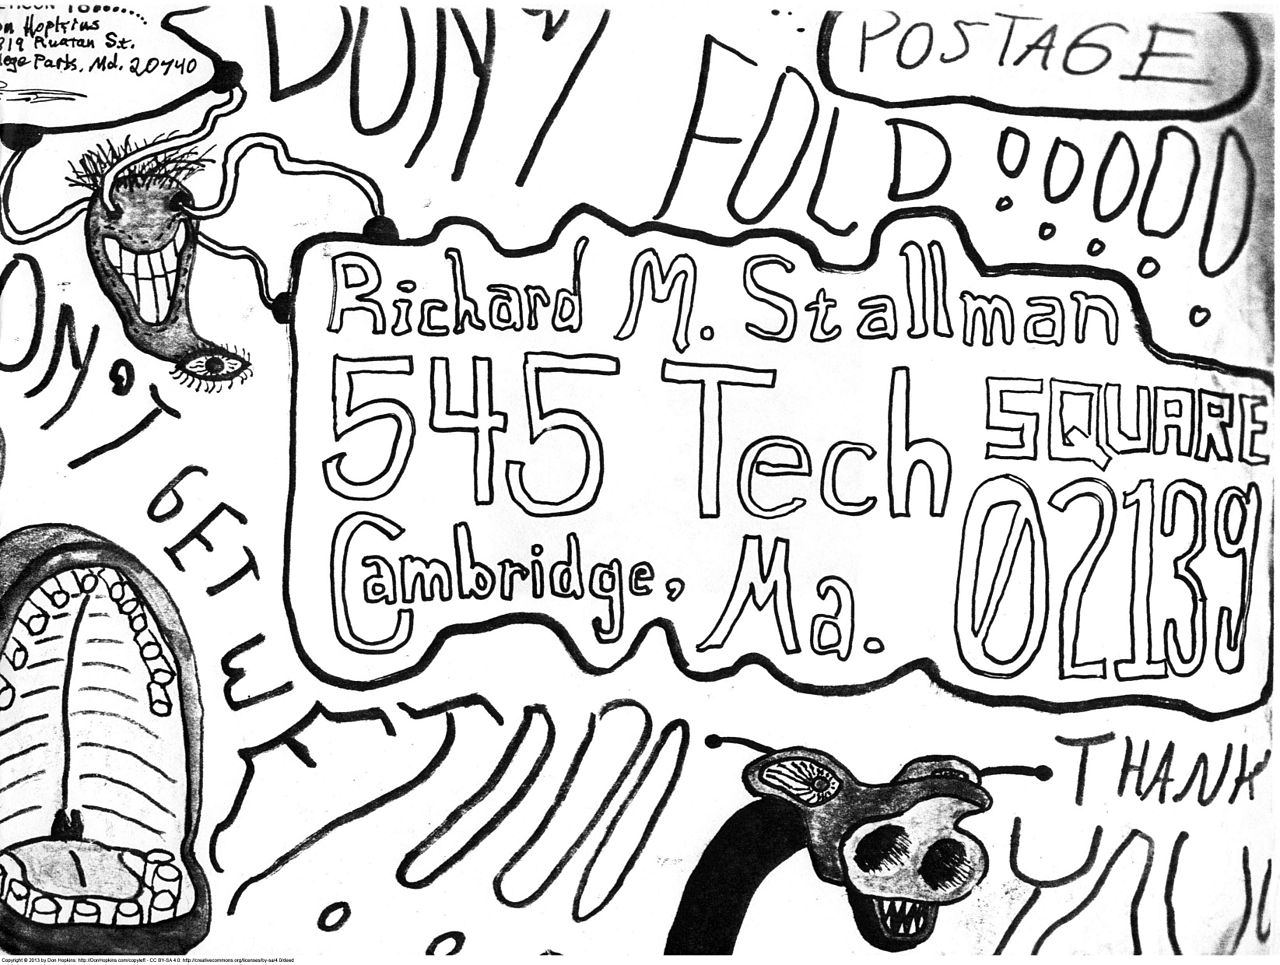 on Hopkins
819 Ruatan St.
lege Park, Md. 20740
DON'T
FOLD!!!!!
POSTAGE
Richard M. Stallman
545 Tech SQUARE
Cambridge, Ma. 02139
ON'T GET WET!!!
THANK
YOU
Copyright © 2013 by Don Hopkins: http://DonHopkins.com/copyleft - CC BY-SA 4.0: http://creativecommons.org/licenses/by-sa/4.0/deed